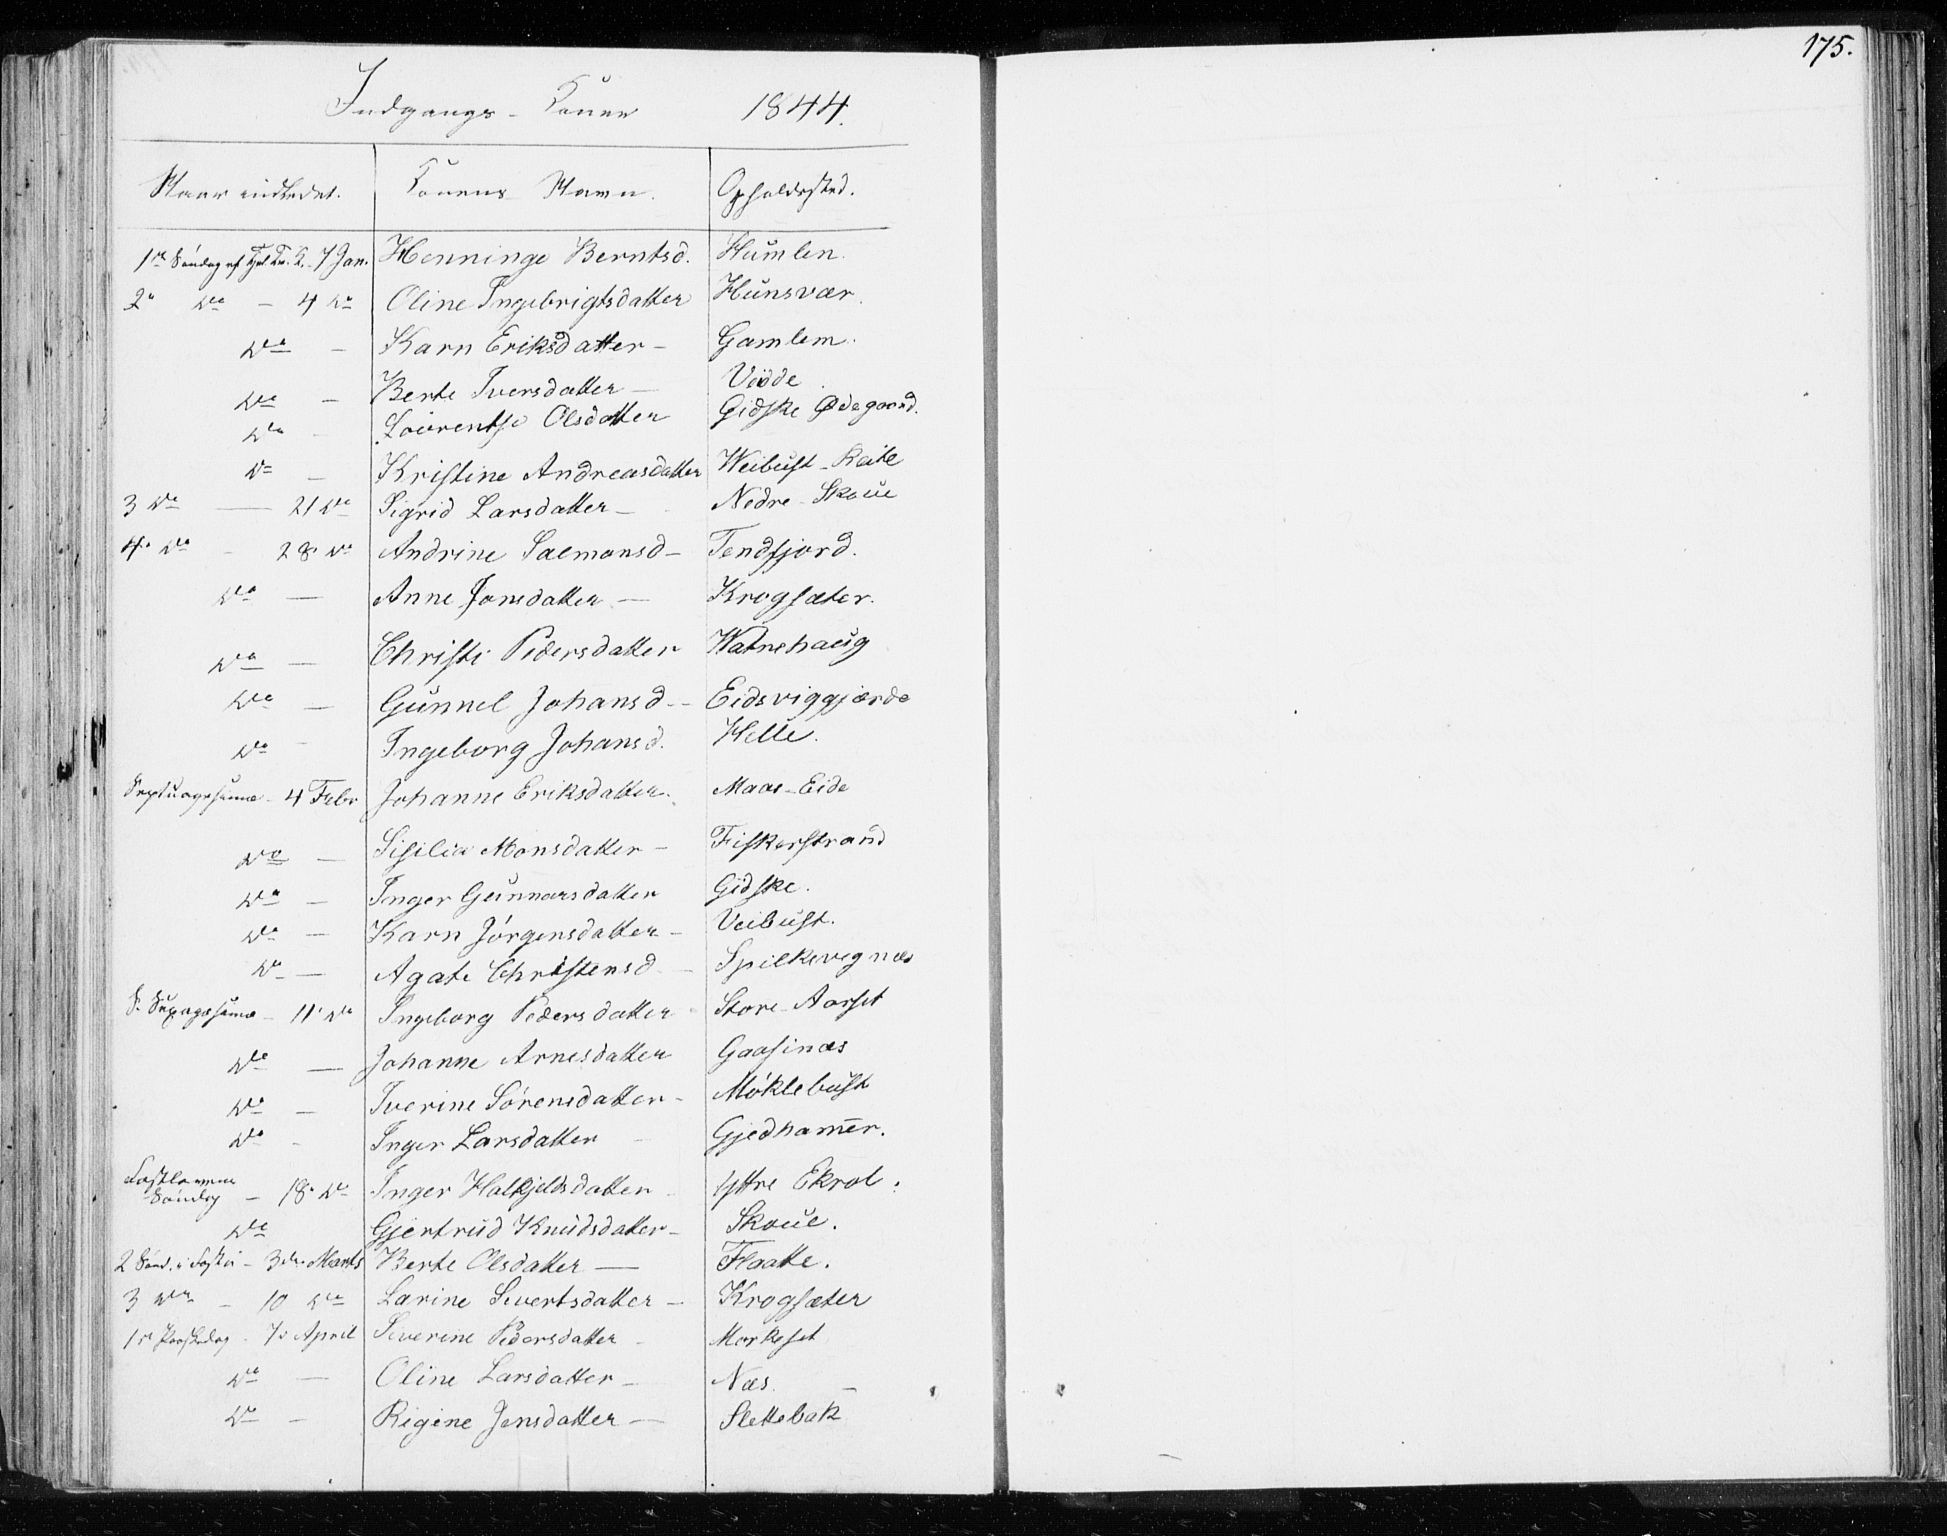 175.
Indgangs-Koner 1844.
Naar indledet. Konens Navn. Opholdssted.
1ste Søndag ef. Hel. Tr. K. 7 Jan. Henninge Berntsd. Humlen.
2n do - 4 do Oline Ingebrigtsdatter Hunsvær.
do - Karn Eriksdatter - Gamlem.
do - Berte Iversdatter - Vödde.
do - Laurentse Olsdatter Gidske Ødegaard.
do - Kristine Andreasdatter Weibust - Reite
3 do - 21 do Sigrid Larsdatter - Nedre - Skoue
4. do - 28. do Andrine Salmonsd - Tendfjord.
do - Anne Jonsdatter - Krogsæter.
do - Christi Pedersdatter Watnehaug
do - Gunnel Johansd - Eidsviggjerde
do - Ingeborg Johansd. Helle.
Septuagesima - 4 Febr Johanne Eriksdatter. Maas-Eide
do - Sisilia Monsdatter - Fiskerstrand
do - Inger Gunnarsdatter Gidske.
do - Karn Jörgensdatter - Veibust.
do - Agate Christensd - Spilkevignæs
S. Sexagesima - 11. do Ingeborg Pedersdatter Store-Aarset
do - Johanne Arnesdatter Gaasenæs
do - Iverine Sörensdatter - Möklebust
do - Inger Larsdatter - Gjedham̄er.
Fastelavens
Söndag - 18. do Inger Halkjeldsdatter - Yttre Ekrol.
do Gjertrud Knudsdatter - Skoue.
2 Sönd. i Faste - 3die Marts Berte Olsdatter - Flaatte.
3 do - 10 do Larine Sivertsdatter - Krogsæter
1ste Paaskedag - 7. April Siverine Pedersdatter - Morkeset
do - Oline Larsdatter - Næs.
do - Rigine Jensdatter - Slettebak